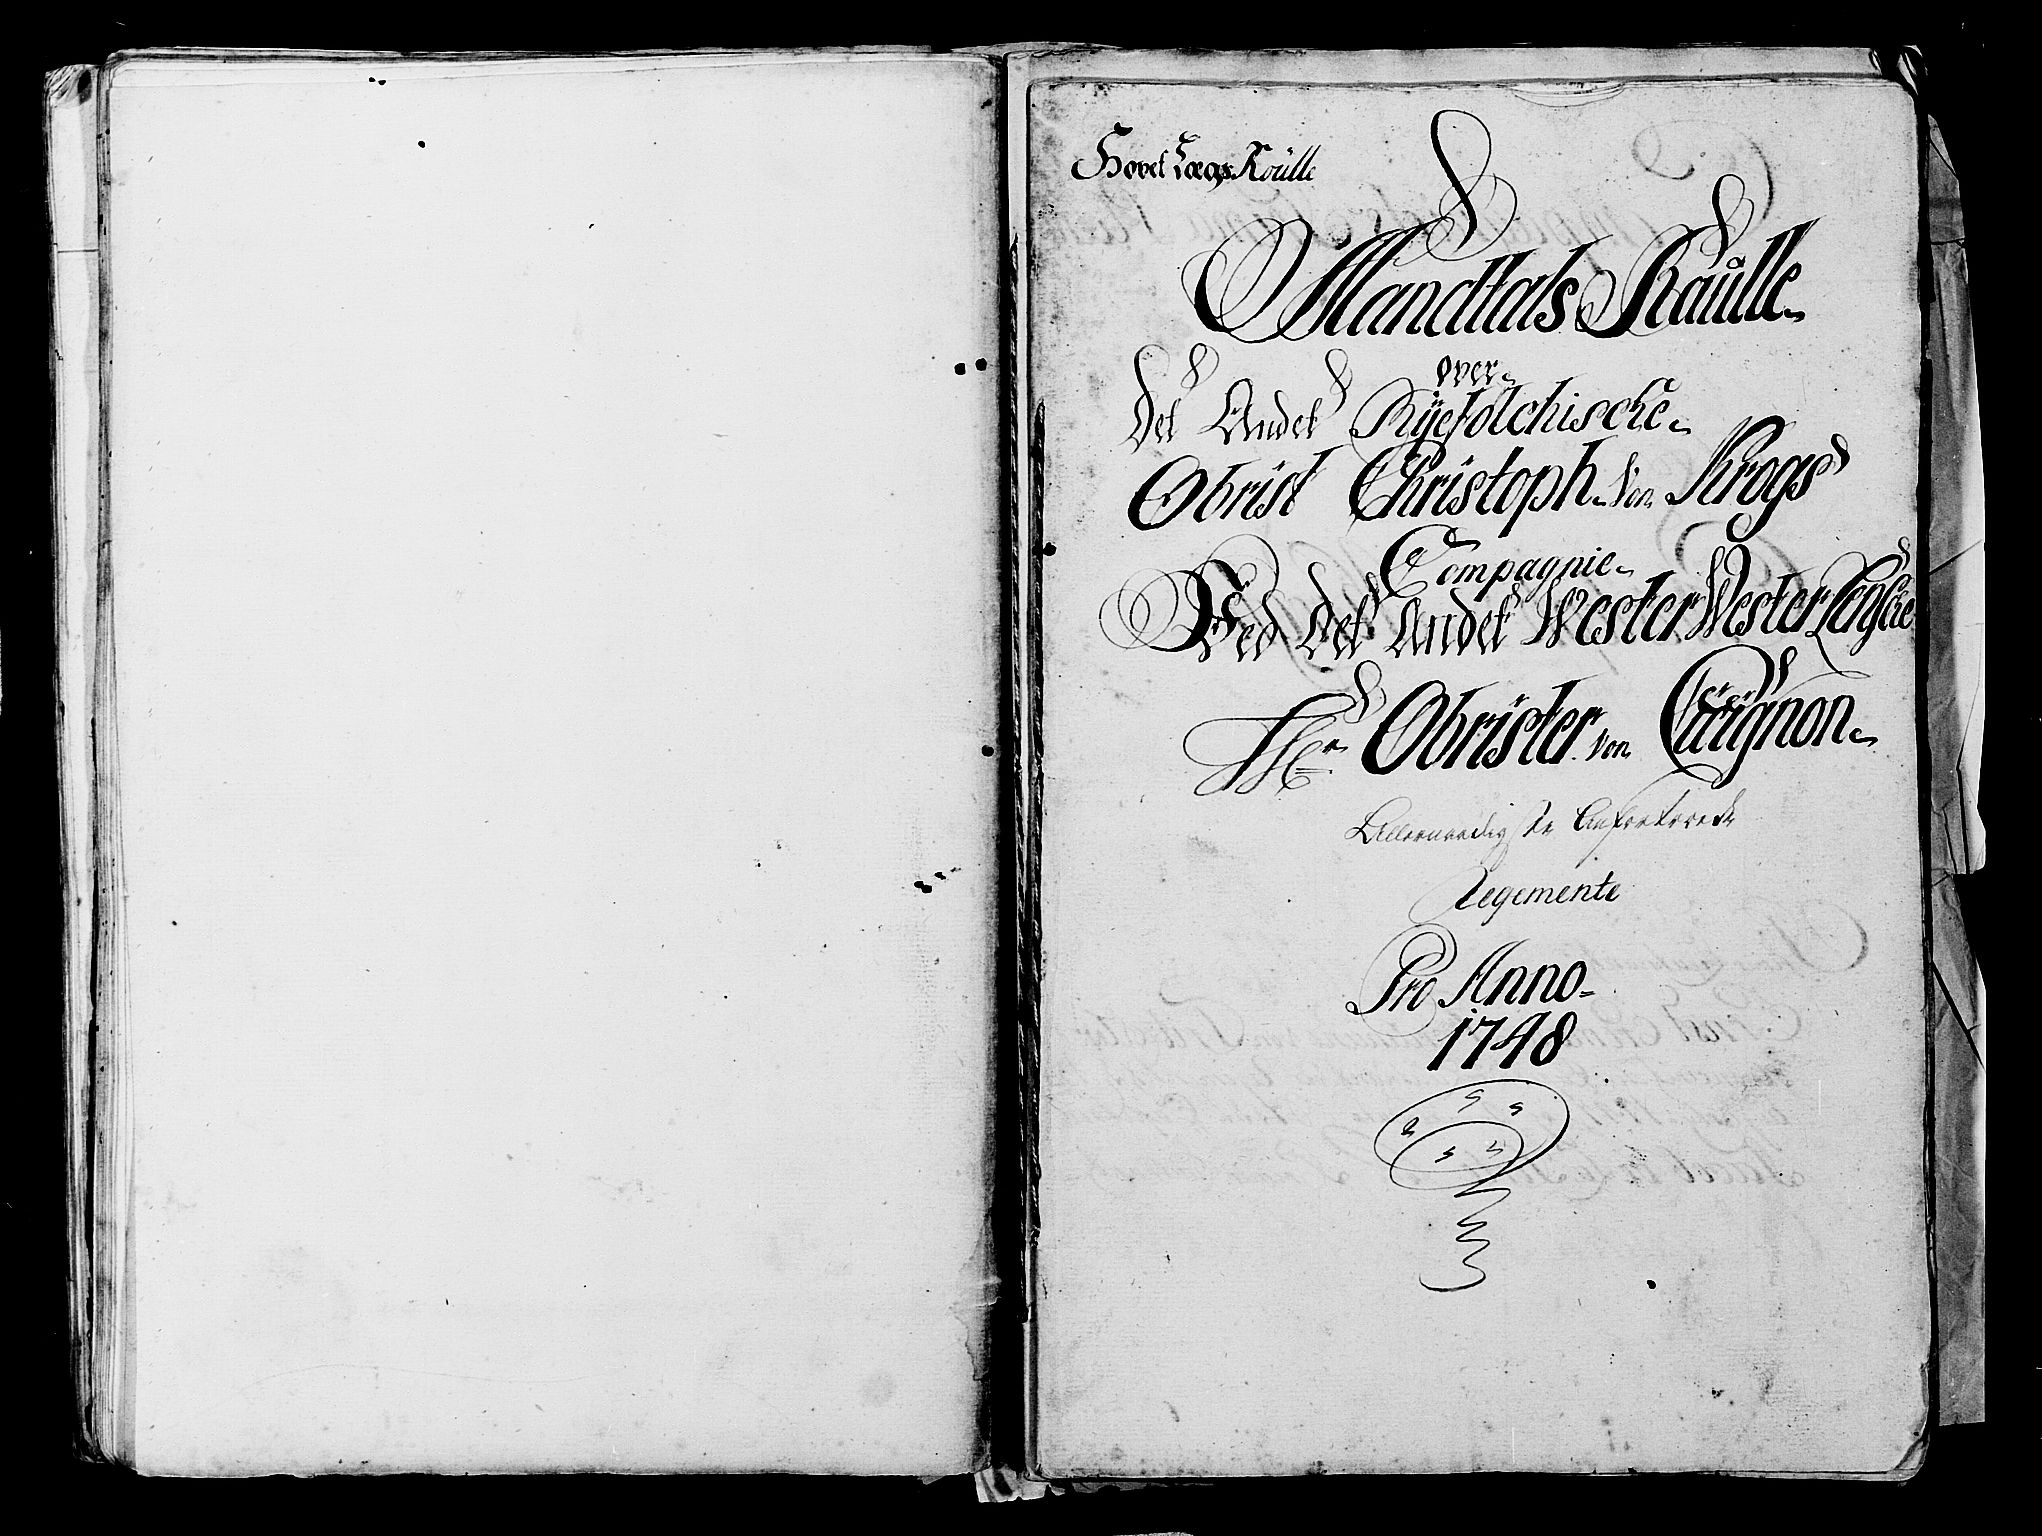 Hovet Lægs Roülle
Mandtals Raůlle
over
Det Andet Ryefölchische
Obrist Christoph von Krogs
Compagnie
Ved det Andet Wester Wester
Hr Obrister von
Allerunderdaniste
Regemente
Pro Anno
1748